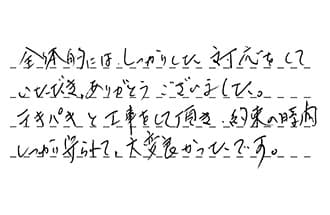 全体的には、しっかりした対応をして
いただき、ありがとうございました。
テキパキと工事をして頂き、約束の時間
しっかり守られて、大変良かったです。